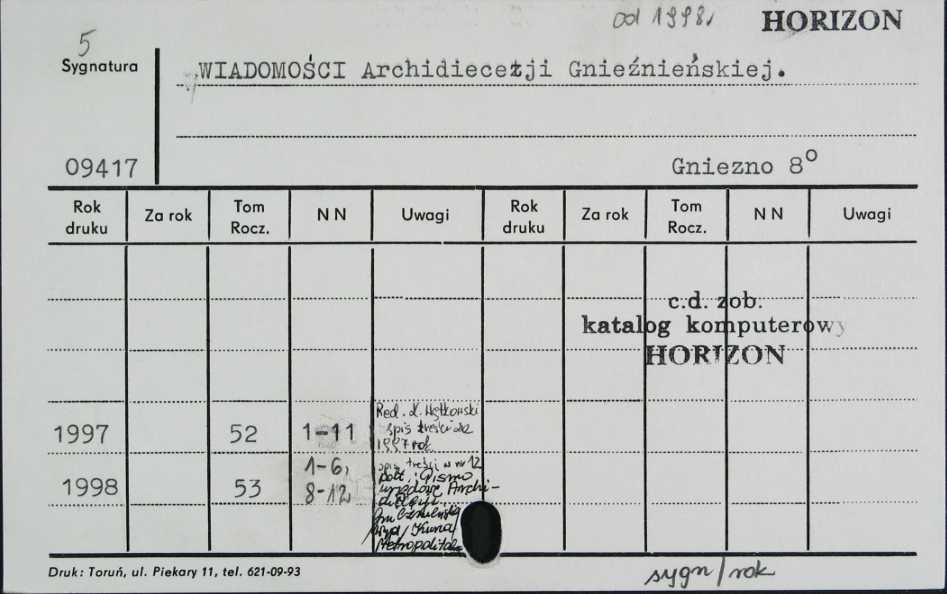 od 1998r HORIZON
5
Sygnatura
WIADOMOŚCI Archidiecezji Gnieźnieńskiej.
09417
Gniezno 8°
Rok druku Za rok Tom Rocz. NN Uwagi Rok druku Za rok Tom Rocz. NN Uwagi
c.d. zob.
katalog komputerowy
HORIZON
1997 52 1-11 Red. spis treści za
1997 rok
1998 53 1-6, 8-12 spis treści w nr 12
Pismo
urzędowe Archi-
Kuria
Metropolital.
Druk: Toruń, ul. Piekary 11, tel. 621-09-93
sygn/rok